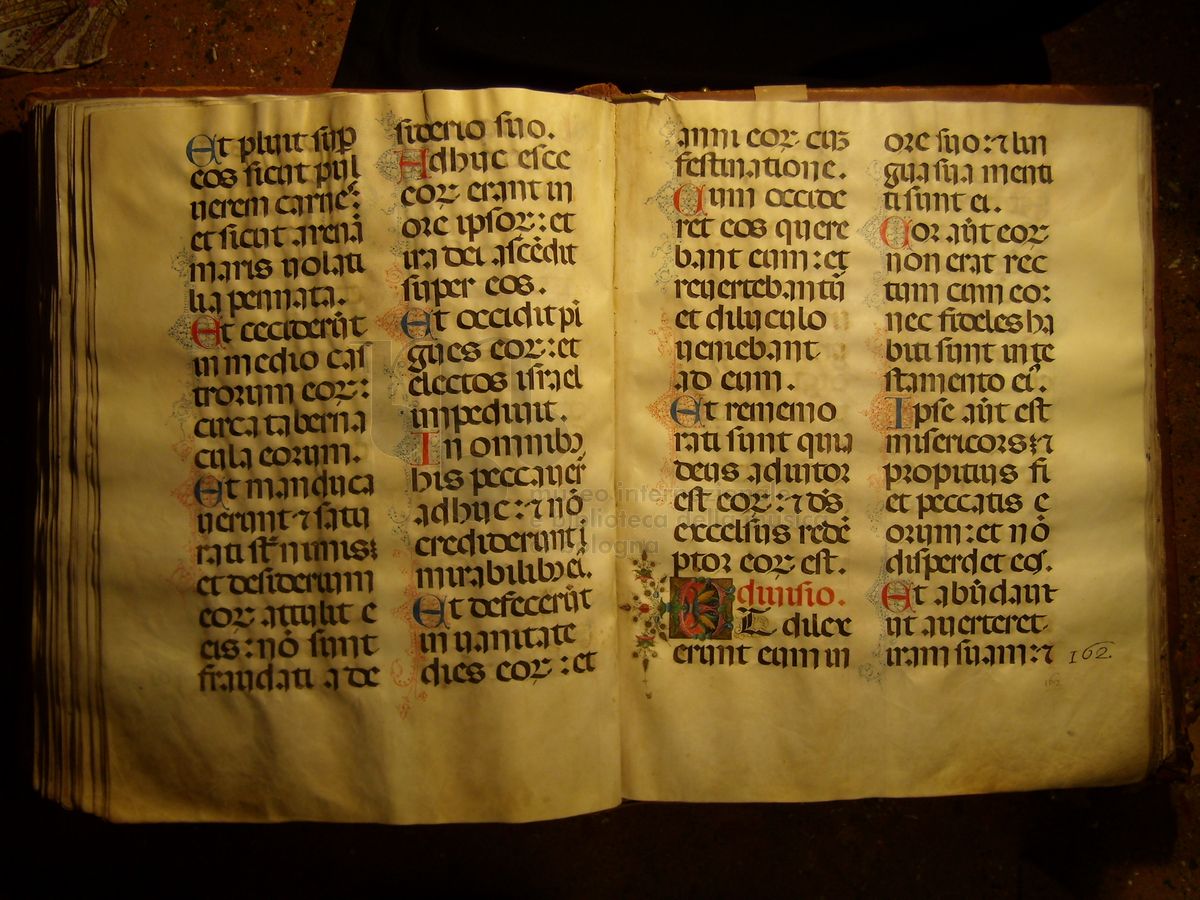 Et pluit sup
eos sicut pul
uerem carnes:
et sicut arenā
maris uolati
lia pennata.
Et ceciderūt
in medio cas
trorum eoꝝ:
circa taberna
cula eorum.
Et manduca
uerunt ⁊ satu
rati st̄ nimis:
et desiderium
eoꝝ attulit e
eis: nō sunt
fraudati a de
siderio suo.
Adhuc esce
eoꝝ erant in
ore ipsoꝝ: et
ira dei ascēdit
super eos.
Et occidit pi
gues eoꝝ: et
electos israel
impediuit.
In omnibꝫ
his peccauer̄
adhuc: ⁊ nō
crediderunt ī
mirabilibꝫ ei.
Et defecerūt
in uanitate
dies eoꝝ: et
anni eoꝝ cuꝫ
festinatione.
Cum occide
ret eos quere
bant eum: et
reuertebantū
et diluculo
ueniebant
ad eum.
Et rememo
rati sunt quia
deus adiutor
est eoꝝ: ⁊ dō̄s
excelsus redē
ptor eoꝝ est.
diuisio.
Et dilex
erunt eum in
ore suo: ⁊ lin
gua sua menti
ti sunt ei.
Cor aūt eoꝝ
non erat rec
tum cum eo:
nec fideles ha
biti sunt in te
stamento ei̓.
Ipse aūt est
misericors ⁊
propitius fi
et peccatis e
orum: et nō
disperdet eos.
Et abūdaut
ut auerteret
iram suam: ⁊
162.
162
museo inter
e biblioteca della musica
bologna